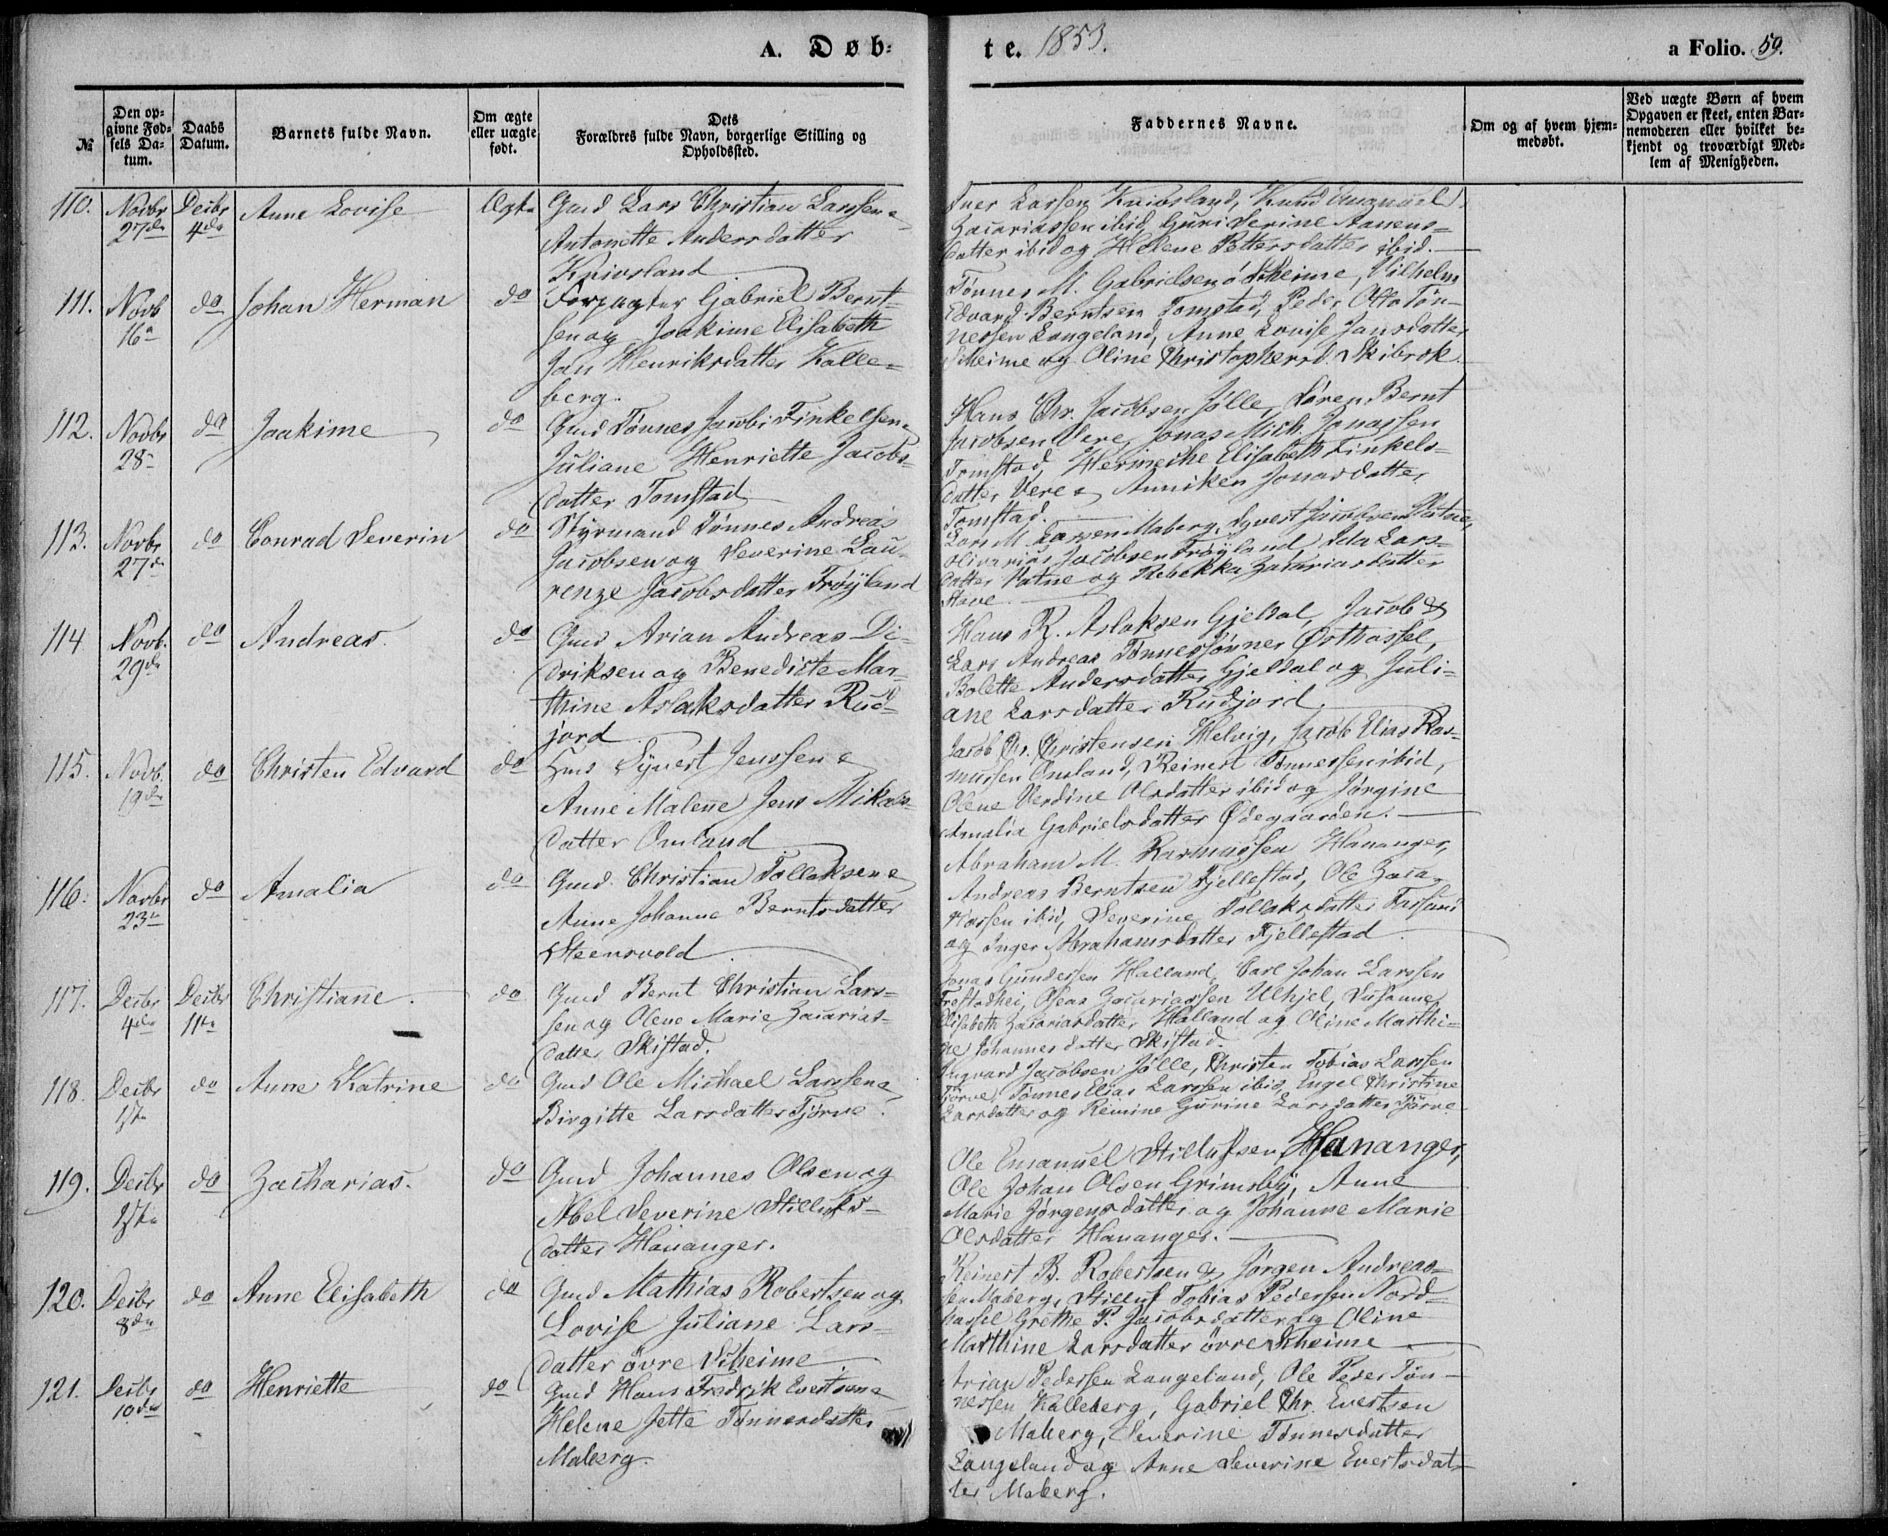 A. Døb-
te. 1853.
a Folio. 59.
№
Den op-
givne Fød-
sels Da-
tum.
Daabs
Datum.
Barnets fulde Navn.
Om ægte
eller uægte
født.
Dets
Forældres fulde Navn, borgerlige Stilling og
Opholdssted.
Faddernes Navne.
Om og af hvem hjem-
medøbt.
Ved uægte Børn af hvem
Opgaven er skeet, enten Bar-
nemoderen eller hvilket be-
kjendt og troværdigt Med-
lem af Menigheden.
110. Novbr 27de Decbr 4de Anne Lovise Ægte Gmd Lars Christian Larssen &
Antonette Andersdatter
Knivsland
Iver Larssen Knivsland, Knud Emanuel
Zacariassen ibid, Guri Serine Aanens-
datter ibid og Helene Pettersdatter ibid.
111. Novb 16de do Johan Herman do Forpagter Gabriel Bernt-
sen og Joakime Elisabeth
Jan Henriksdatter Kalle-
berg.
Tønnes M. Gabrielsen ø Skeime, Vilhelm
Edvard Berntsen Tomstad, Peder Otto Tøn-
nessen Langeland, Anne Lovise Jansdatter
Skeime og Oline Christophersd. Skibrok
112. Novbr 28de do Joakime do Gmd Tønnes Jacobi Finkelsen &
Juliane Henriette Jacobs-
datter Tomstad
Hans Chr. Jacobsen Jølle, Søren Bernt
Jacobsen Vere, Jonas Mich. Jonassen
Tomstad, Hermeche Elisabeth Finkels-
datter Vere & Anniken Jonasdatter
Tomstad.
113. Novbr 27de do Conrad Severin do Styrmand Tønnes Andreas
Jacobsen og Severine Lau-
renze Jacobsdatter Frøyland
Lars M. Larsen Maberg, Syvert Jacobsen Vatne,
Olivarius Jacobsen Frøyland, Ida Lars-
datter Vatne og Rebekka Zacariasdatter
Stave
114 Novb. 29de do Andreas. do Gmd Arian Andreas Di-
driksen og Benedicte Mar-
thine Aslaksdatter Rud-
jord
Hans R. Aslaksen Gjeldal, Jacob &
Lars Andreas Tønnessønner Østhassel,
Bolette Andersdatter Gjeldal og Juli-
ane Larsdatter Rudjord.
115. Novb. 19de do Christen Edvard do Gmd Syvert Jenssen &
Anne Malene Jens Mikals-
datter Omland
Jacob Chr. Christensen Helvig, Jacob Elias Ras-
mussen Omland, Reinert Tønnessen ibid,
Olene Verdine Olsdatter ibid og Jørgine
Amalia Gabrielsdatter Ødegaarden.
116. Novbr 23de do Amalia do Gmd. Christian Tollaksen &
Anne Johanne Berntsdatter
Steensvold
Abraham M. Rasmussen Hananger,
Andreas Berntsen Fjellestad, Ole Zaca-
riassen ibid, Severine Tollaksdatter
og Inger Abrahamsdatter Fjellestad
117. Decbr 4de Decbr 11te Christiane. do Gmd Bernt Christian Lars-
sen og Olene Marie Zacarias-
datter Skiftad.
Jonas Gundersen Halland, Carl Johan Larssen
Trestadhei, Oseas Zacariassen Ulhjel, Susanne
Elisabeth Zacariasdatter Halland og Oline Marthi-
ne Johannesdatter Skiftad.
118. Decbr 1ste do Anne Katrine do Gmd Ole Michael Larssen &
Birgitte Larsdatter Tjørve
Ingvard Jacobsen Jølle, Christen Tobias Larssen
Tjørve, Tønnes Elias Larssen ibid, Engel Christine
Larsdatter og Reinine Gurine Larsdatter Tjørve
119. Decbr 1ste do Zacharias. do Gmd Johannes Olsen og
Abel Severine Stillufs-
datter Hananger.
Ole Emanuel Stillufsen, Hananger,
Ole Johan Olsen Grimsby, Anne
Marie Jørgensdatter og Johanne Marie
Olsdatter Hananger.
120. Decbr 8de do Anne Elisabeth do Gmd Mathias Robertsen og
Lovise Juliane Lars-
datter øvre Skeime
Reinert B. Robertsen & Jørgen Andreas-
sen Maberg, Stilluf Tobias Pedersen Nord-
hassel Grethe P. Jacobsdatter og Oline
Marthine Larsdatter øvre Skeime
121. Decbr 10de do Henriette do Gmd Hans Fredrik Evertsen &
Helene Jette Tønnesdatter
Maberg.
Arian Pedersen Langeland, Ole Peder Tøn-
nessen Kalleberg, Gabriel Chr. Evertsen
Maberg, Severine Tønnesdatter
Langeland og Anne Severine Evertsdat-
ter Maberg.